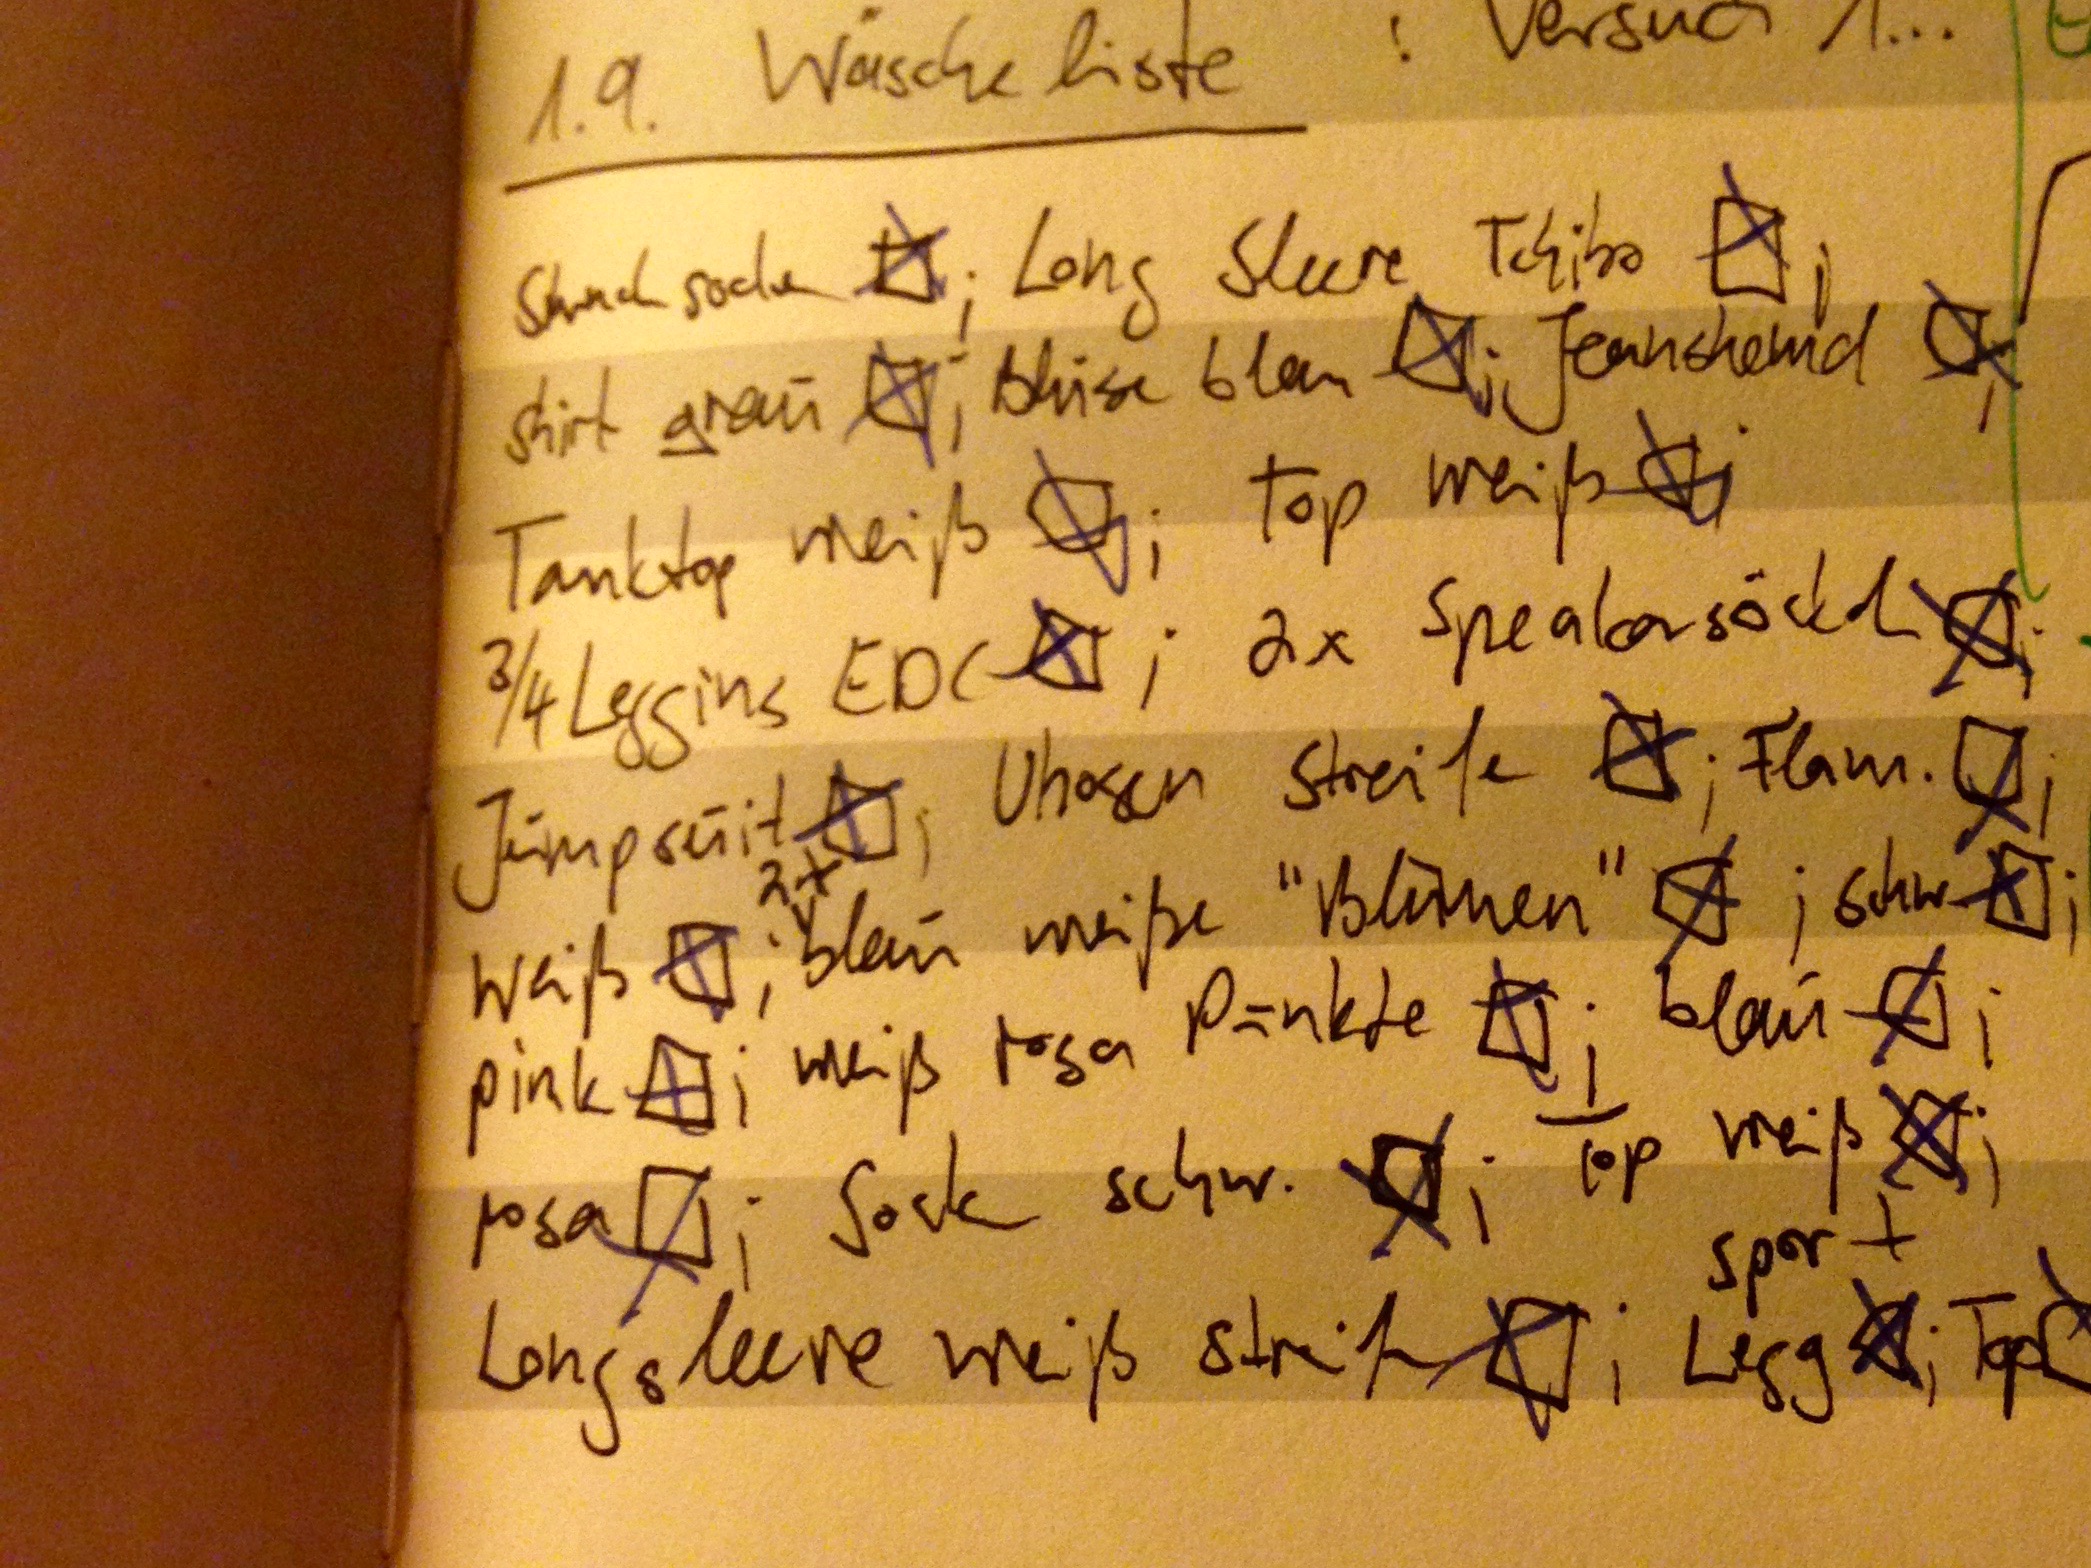 1.9. Wäscheliste : Versuch 1...
socke ☒; Long Sleeve Tchibo ☒;
Shirt grau ☒; Bluse blau ☒; Jeanshemd ☒;
Tanktop weiß ☒; Top weiß ☒;
3/4 Leggins EDC ☒; 2x Speakersöckch ☒;
Jumpsuit ☒; Uhosen Streife ☒; Flam. ☒;
weiß ☒; 2x blau weiße "Blumen" ☒; schw. ☒;
pink ☒; weiß rosa Punkte ☒; blau ☒;
rosa ☒; Socke schw. ☒; Top weiß ☒;
Sport
Longsleeve weiß Streife ☒; Legg ☒; Top ☒